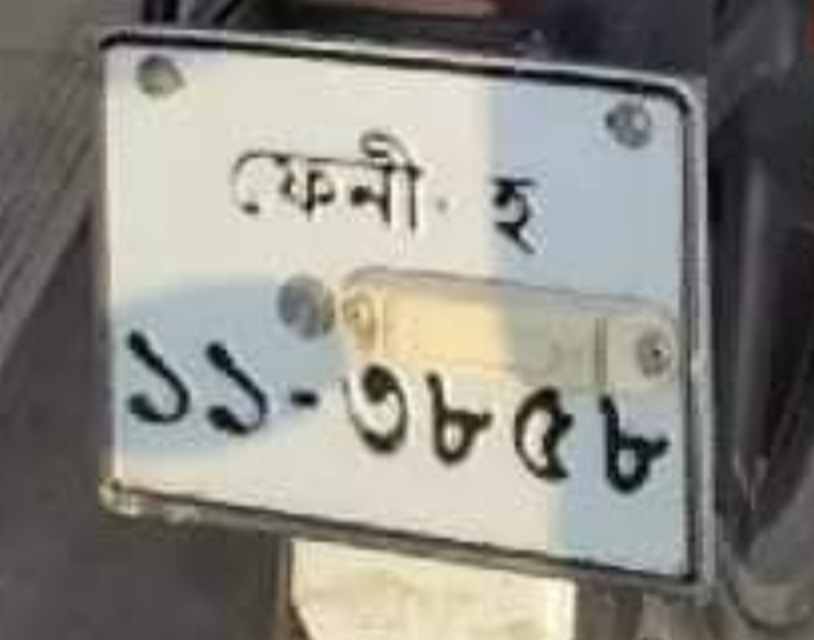 ফেনী. হ
১১-৩৮৫৮